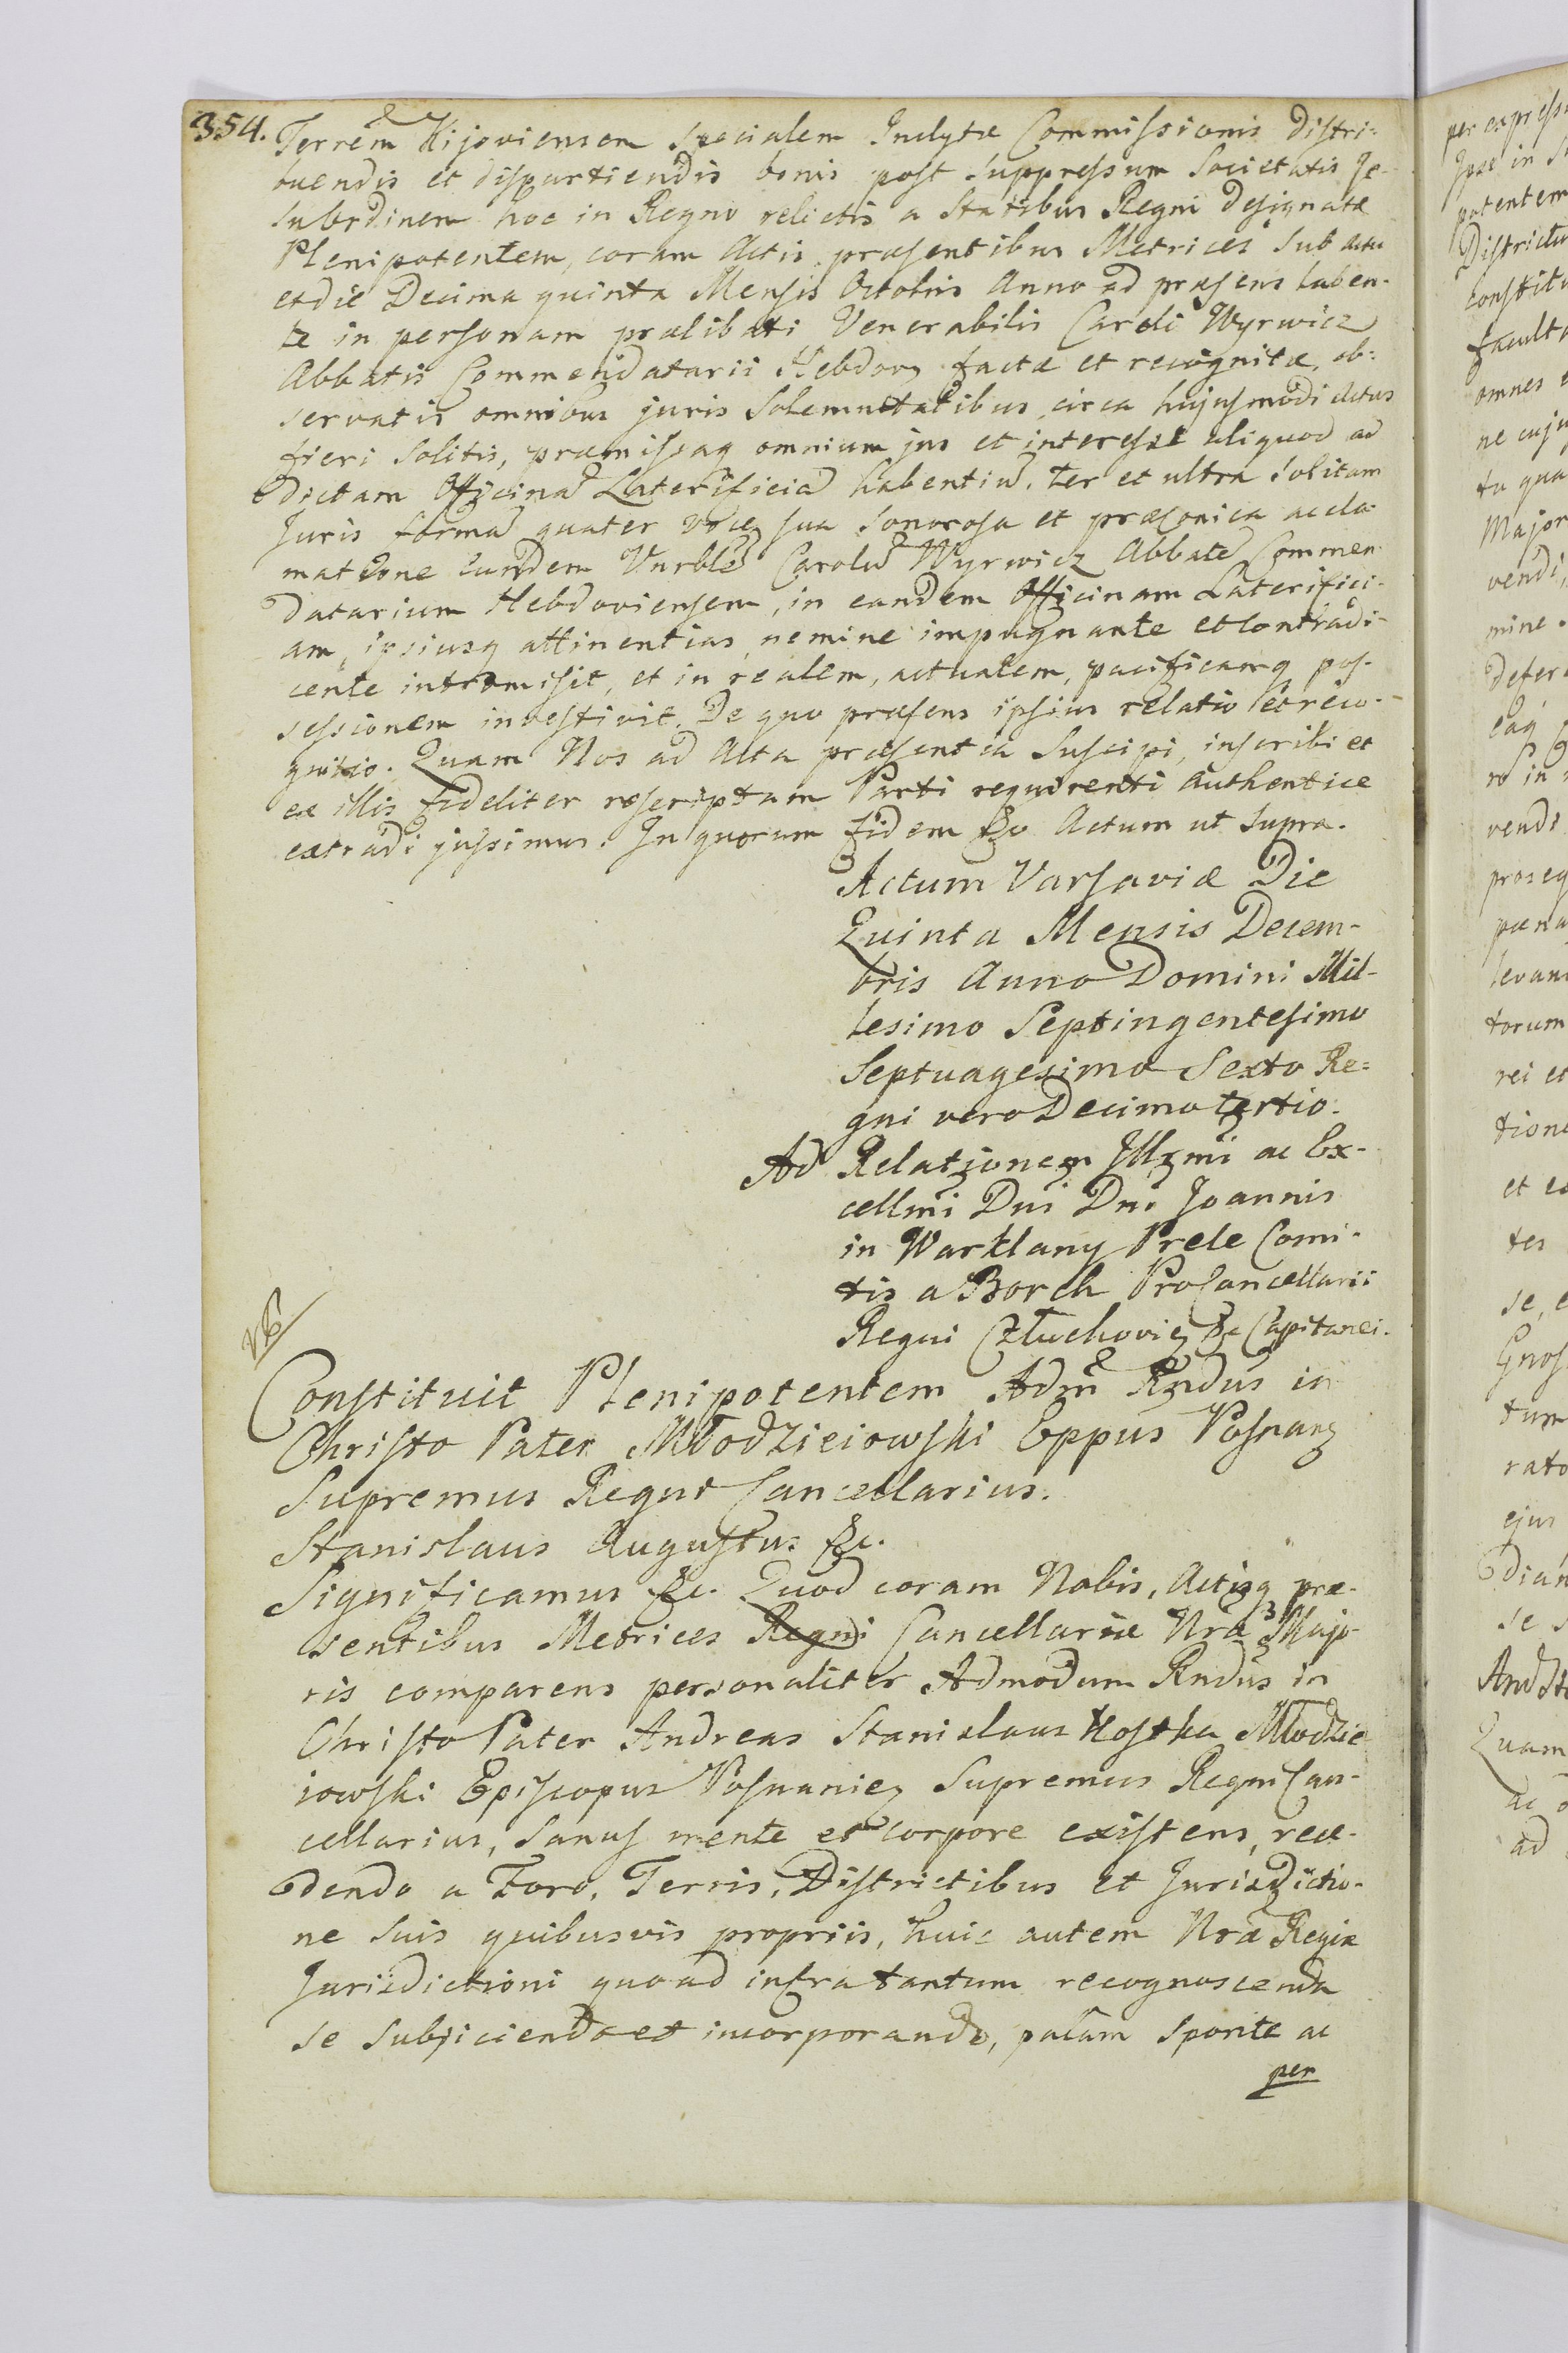 354.
Terrem̃ Kijoviensem Specialem Inclytæ Commissionis distri:
buendis et dispartiendis bonis post Suppressum Societatis Je-
su ordinem hoc in Regno relictis a Statibus Regni designatæ
Plenipotentem, coram Actis præsentibus Metrices Sub actu
et die Decima quinta Mensis Octobris Anno ad præsens haben-
te in personam prælibati Venerabilis Caroli Wyrwicz
Abbatis Commendatarii Hebdov. factæ et recognitæ, ob:
servatis omnibus juris Solemnitatibus circa hujusmodi actus
fieri Solitis, præmissaq omnium jus et interesse aliquod ad
dictam Officinã Laterificiã habentiũ, ter et ultra Solitam
Juris formã quater voce sua Sonorosa et præconica accla-
matione eundem Vnrblẽ Carolũ Wyrwicz Abbatẽ Commen-
datarium Hebdoviensem, in eandem Officinam Laterifici-
am, ipsiusq attinentias, nemine impugnante et Contradi-
cente intromisit, et in realem, actualem, pacificamq pos-
sessionem investivit. De quo præsens ipsius relatio et reco-
gnitio. Quam Nos ad Acta præsentia Suscipi, inscribi et
ex illis fideliter rescriptam Parti requirenti authentice
extradi jussimus. In quorum fidem &c Actum ut Supra.
Actum Varsaviæ Die
Quinta Mensis Decem-
bris Anno Domini Mil-
lesimo Septingentesimo
Septuagesimo Sexto Re=
gni vero Decimo tertio.
Ad Relationem Illmi ac Ex-
cellmi Dni Dni Joannis
in Warklany Prele Comi-
tis a Borch ProCancellarii
Regni Człuchovien &c Capitanei.
Constituit Plenipotentem Adm̃ Rndus in
Christo Pater Młodzieiowski Eppus Posnan
Supremus Regni Cancellarius.
Stanislaus Augustus &c.
Significamus &c. Quod coram Nobis, Actisq præ-
sentibus Metrices Regni Cancellariæ Nræ Majo-
ris comparens personaliter Admodum Rndus in
Christo Pater Andreas Stanislaus Kostka Młodzie
iowski Episcopus Posnanien Supremus Regni Can-
cellarius, Sanus mente et corpore existens, rece-
dendo a Foro, Terris, Districtibus et Jurisdictio-
ne Suis quibusvis propriis, huic autem Nræ Regiæ
Jurisdictioni quoad infra tantum recognoscenda
se Subjiciendo et incorporando, palam Sponte ac
per
per express
potentem
Districtu
constitu
faculta
omnes
ne cuju
ta qua
Major
vendi,
mine.
defer
eaq
ro in
vendi
proseq
pæna
levan
torum
rei et
tion
et
tes
se,
Gnos
tum
rato
ejus
dian
se
Quam
ac
ad